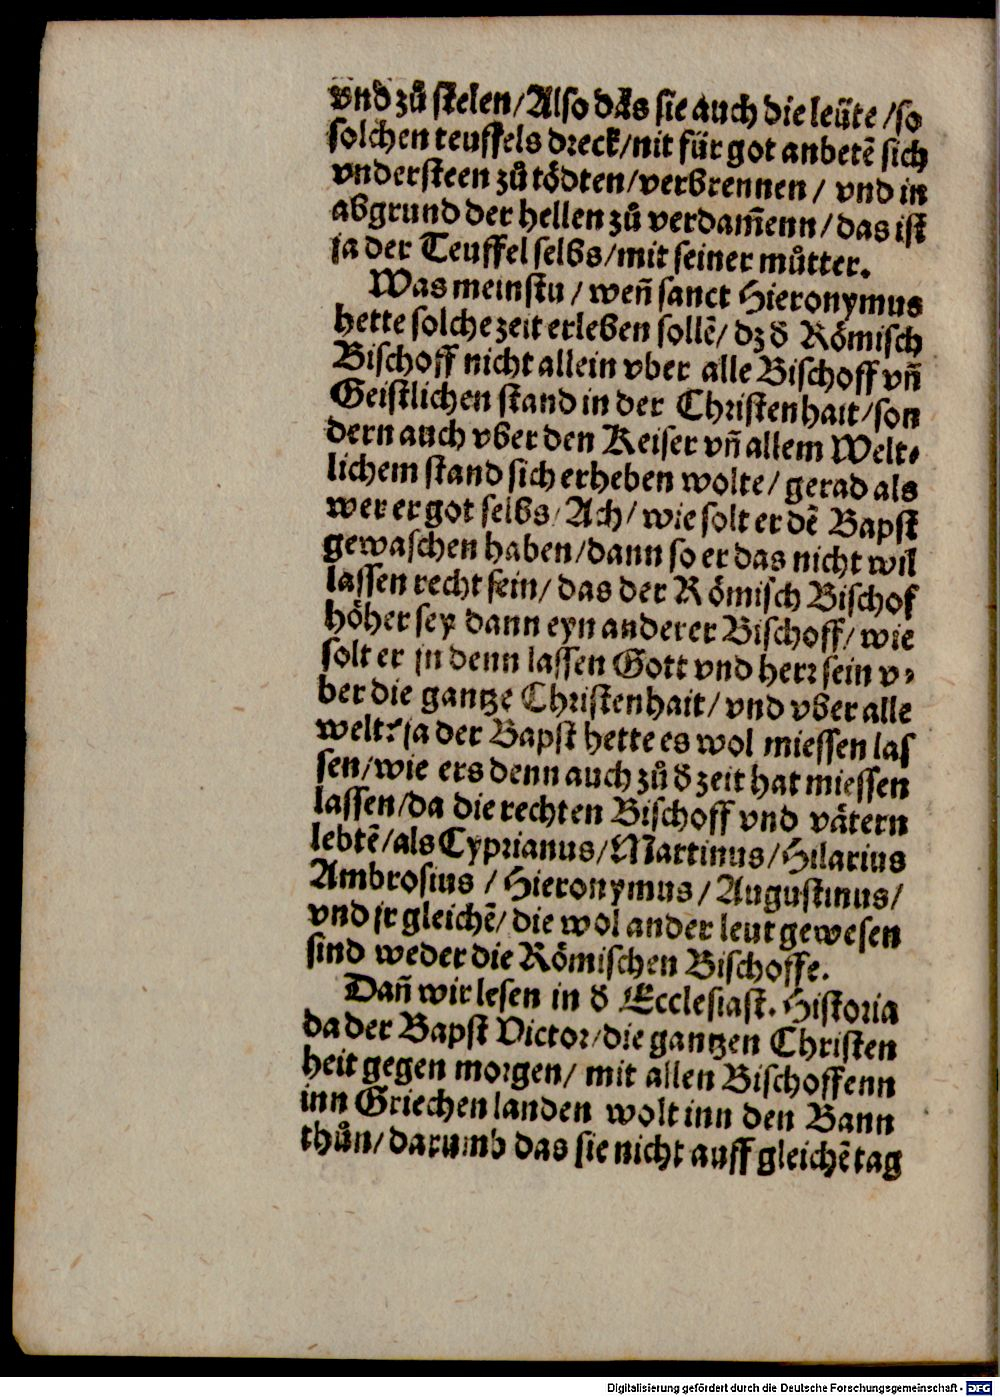 vnd zů stelen/Also das sie auch die leüte /so
solchen teuffels dreck/nit für got anbetē sich
vndersteen zů tödten/verbrennen / vnd in
abgrund der hellen zů verdam̄enn/das ist
ja der Teuffel selbs/mit seiner můtter.
Was meinstu / wen̄ sanct Hieronymus
hette solche zeit erleben sollē/ dz d̕ Römisch
Bischoff nicht allein vber alle Bischoff vn̄
Geistlichen stand in der Christenhait/son
dern auch vber den Keiser vn̄ allem Welt⸗
lichem stand sich erheben wolte/ gerad als
wer er got selbs/ Ach/ wie solt er dē Bapst
gewaschen haben/dann so er das nicht wil
lassen recht sein/ das der Römisch Bischof
höher sey dann eyn anderer Bischoff/ wie
solt er jn denn lassen Gott vnd herr sein v⸗
ber die gantze Christenhait/ vnd vber alle
welt? ja der Bapst hette es wol miessen las
sen/wie ers denn auch zů d̕ zeit hat miessen
lassen/da die rechten Bischoff vnd vätern
lebtē/als Cyprianus/Martinus/Hilarius
Ambrosius / Hieronymus / Augustinus/
vnd jr gleichē/ die wol ander leut gewesen
sind weder die Römischen Bischoffe.
Dan̄ wir lesen in d̕ Ecclesiast. Historia
da der Bapst Victor/die gantzen Christen
heit gegen morgen/ mit allen Bischoffenn
inn Griechen landen wolt inn den Bann
thůn/ darumb das sie nicht auff gleichē tag
Digitalisierung gefördert durch die Deutsche Forschungsgemeinschaft - DFG